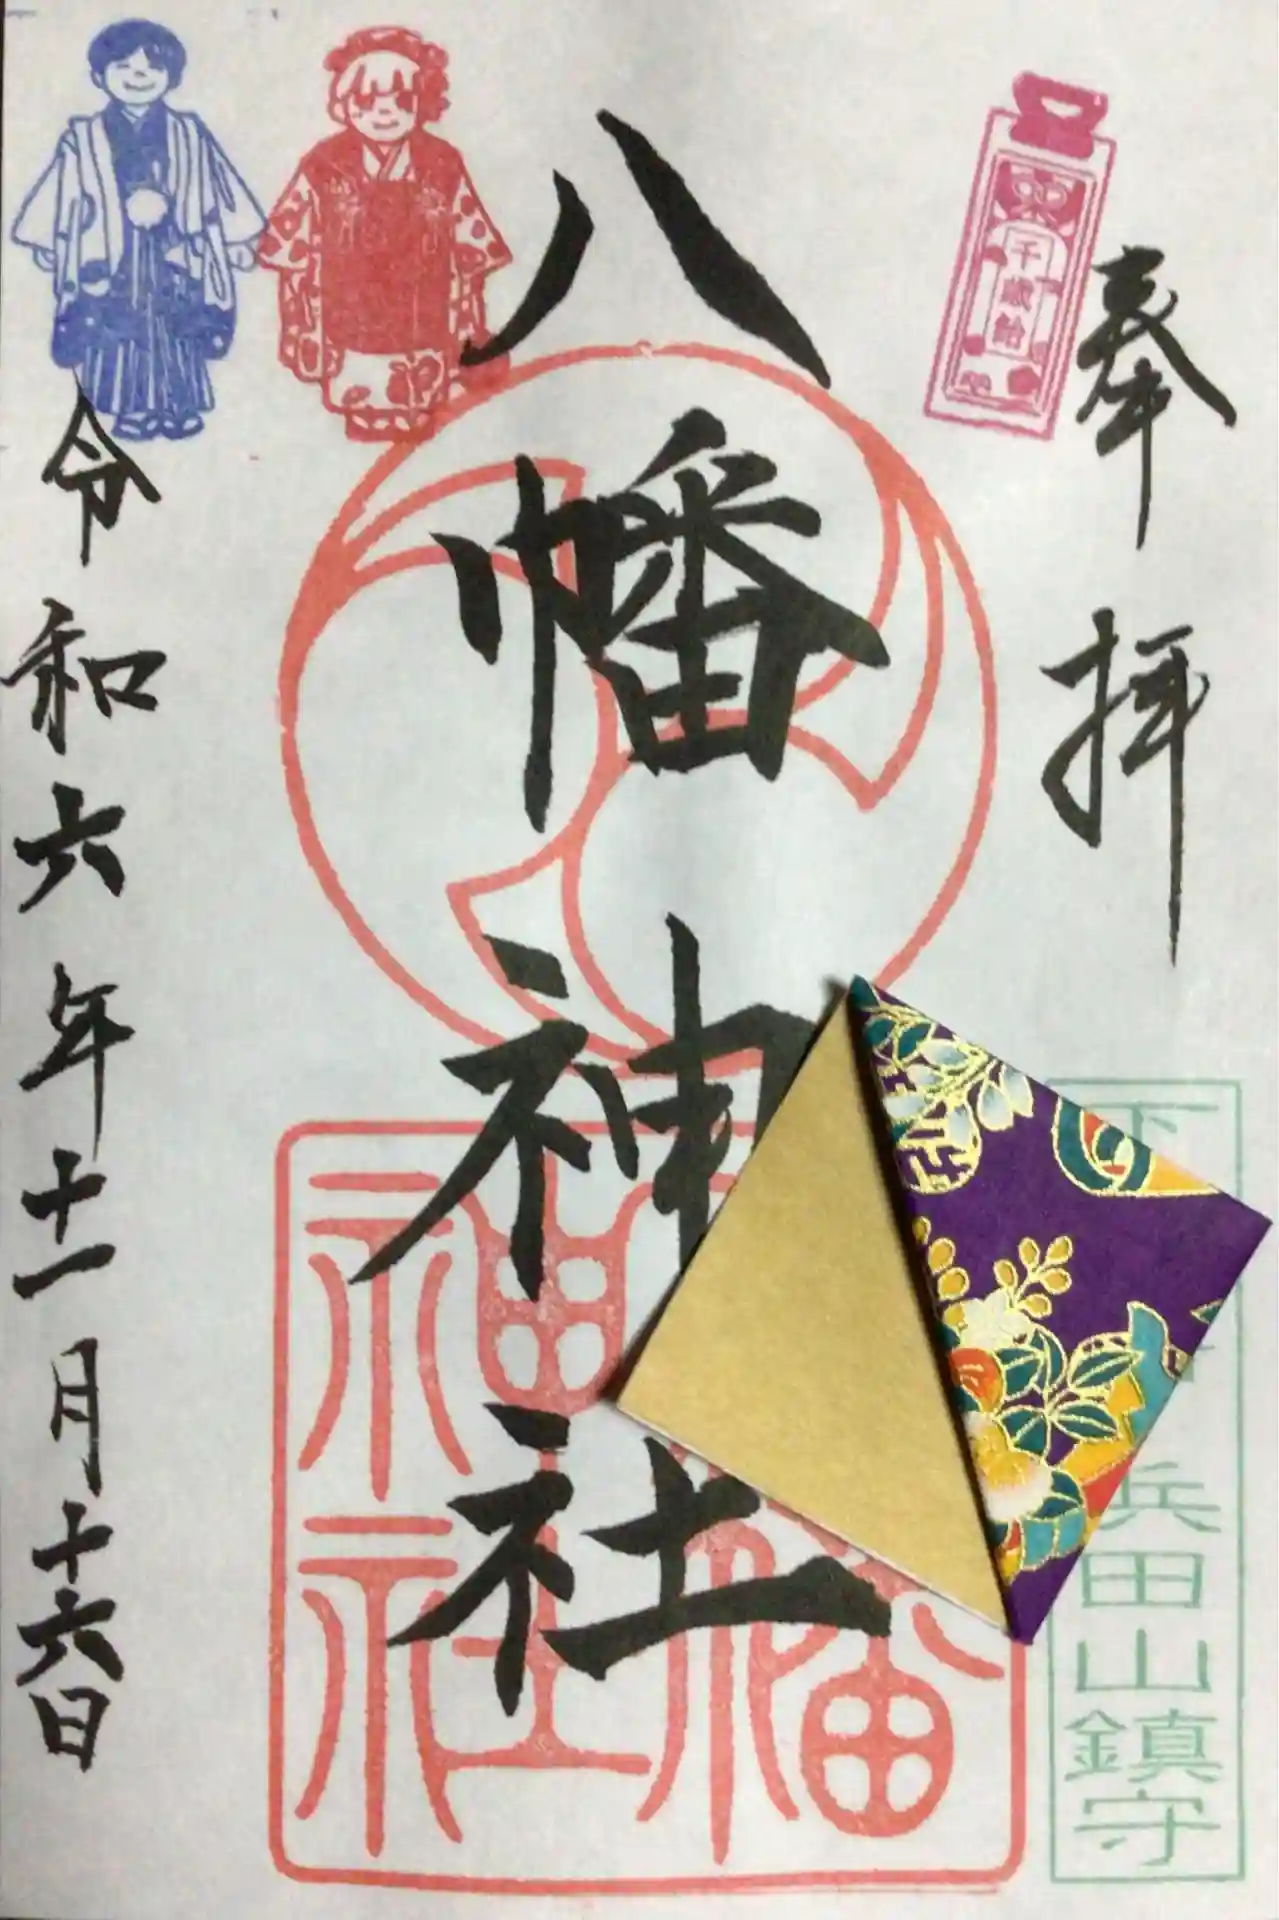 奉拝
千歳飴
下
兵田山鎮守
八幡神社
神社
令和六年十一月十六日